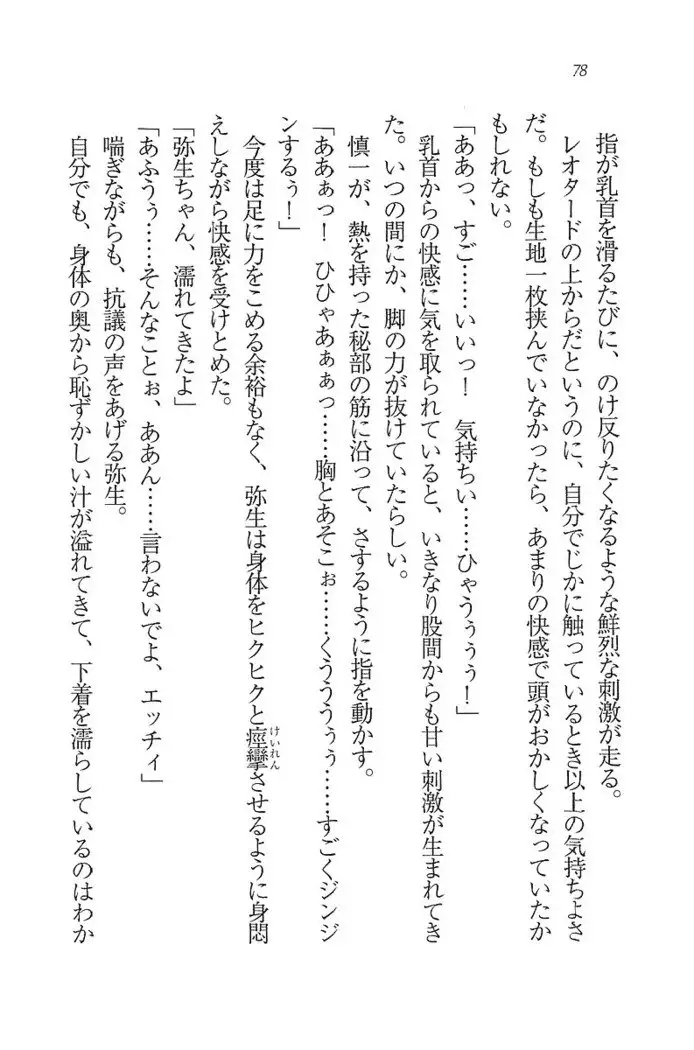 78
指が乳首を滑るたびに、のけ反りたくなるような鮮烈な刺激が走る。
レオタードの上からだというのに、自分でじかに触っているとき以上の気持ちよさ
だ。もしも生地一枚挟んでいなかったら、あまりの快感で頭がおかしくなっていたか
もしれない。
「ああっ、すご……いいっ！　気持ちい……ひゃうぅぅぅ！」
乳首からの快感に気を取られていると、いきなり股間からも甘い刺激が生まれてき
た。いつの間にか、脚の力が抜けていたらしい。
慎一が、熱を持った秘部の筋に沿って、さするように指を動かす。
「ああぁっ！　ひひゃあぁぁっ……胸とあそこぉ……くうううぅぅ……すごくジンジ
ンするぅ！」
今度は足に力をこめる余裕もなく、弥生は身体をヒクヒクと痙攣させるように身悶
けいれん
えしながら快感を受けとめた。
「弥生ちゃん、濡れてきたよ」
「あふうぅ……そんなことぉ、ああん……言わないでよ、エッチィ」
喘ぎながらも、抗議の声をあげる弥生。
自分でも、身体の奥から恥ずかしい汁が溢れてきて、下着を濡らしているのはわか